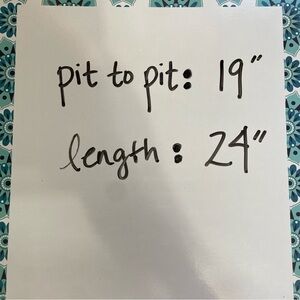 pit to pit: 19"
length: 24"